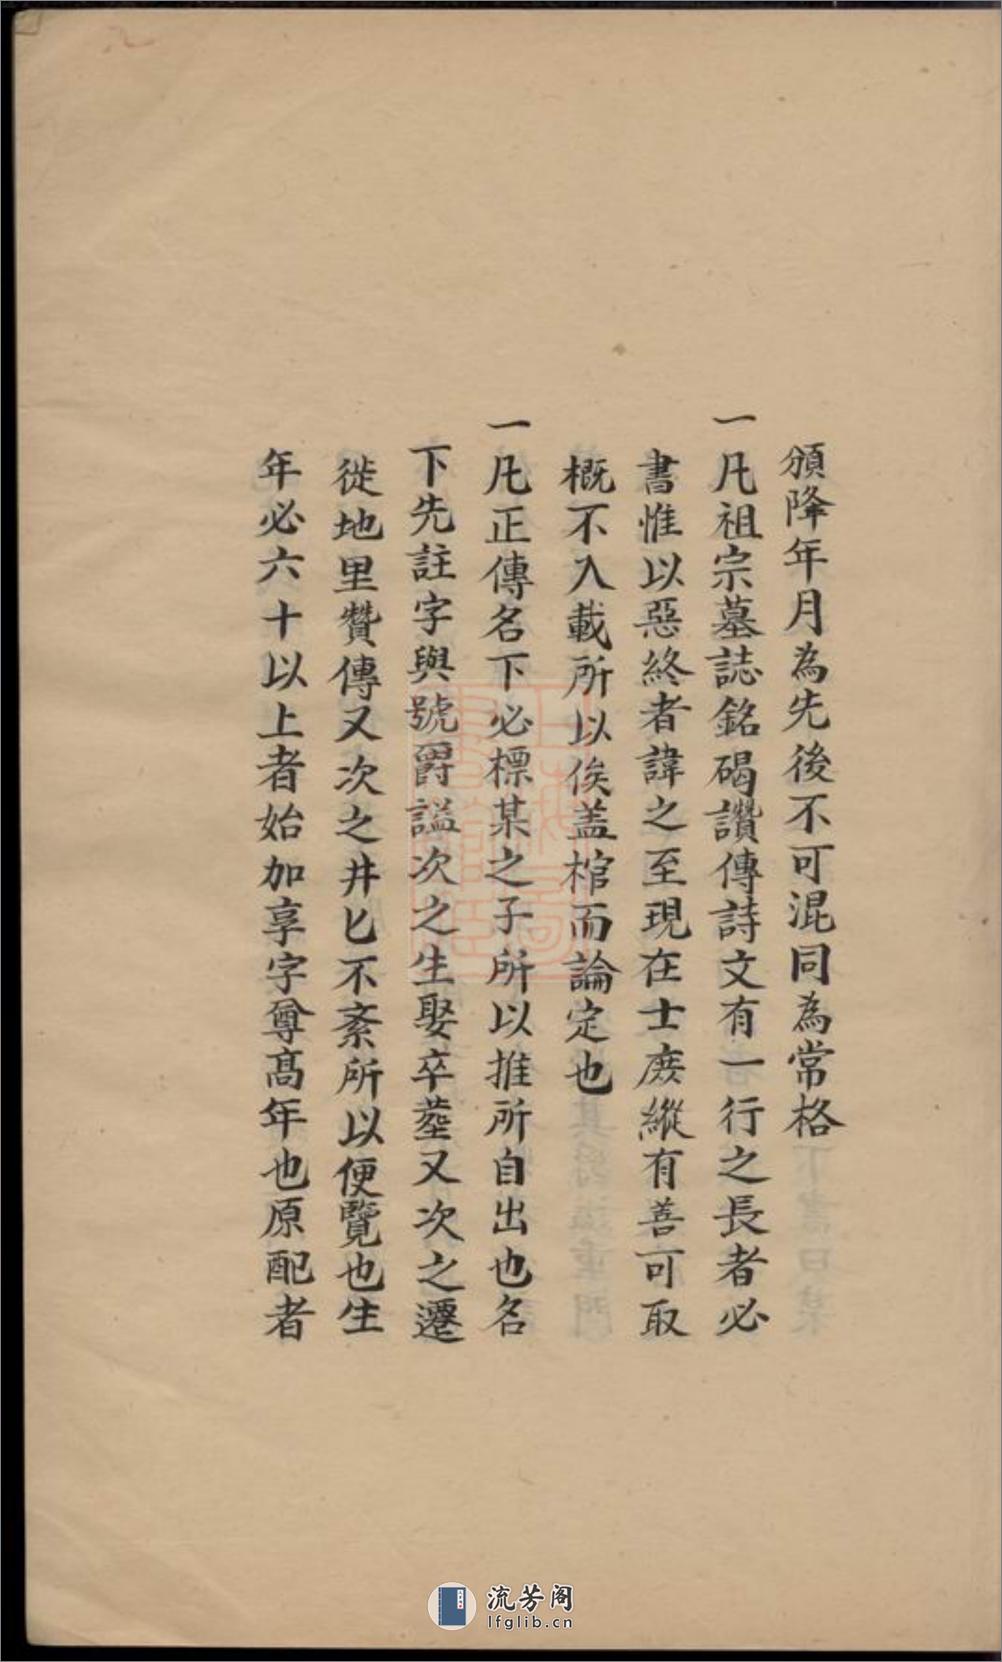 頒降年月為先後不可混同為常格
一凡祖宗墓誌銘碣讚傳詩文有一行之長者必
書惟以惡終者諱之至現在士庶縱有善可取
概不入載所以俟盖棺而論定也
一凡正傳名下必標某之子所以推所自出也名
下先註字與號爵謚次之生娶卒塟又次之遷
徙地里贊傳又次之井匕不紊所以便覽也生
年必六十以上者始加享字尊髙年也原配者
流芳阁
lfglib.cn